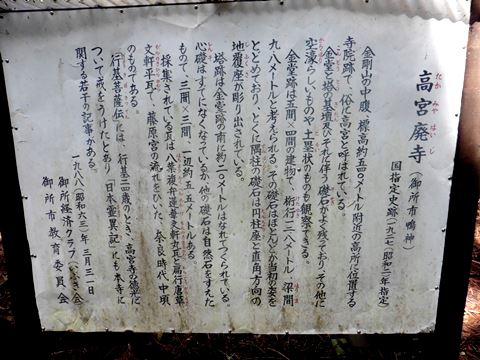 高宮廃寺 (御所市鴨神)
たかみやはいじ
国指定史跡(一九二七、昭和二年指定)
金剛山の中腹、標高約五四〇メートル附近の高所に位置する
寺院跡で、俗に高宮と呼ばれている。
金堂と塔の基壇及びそれに伴う礎石がよく残っており、その他に
空濠らしいものや土塁状のものも観察できる。
金堂跡は五間、四間の建物で、桁行一二、八メートル、梁間
九、八メートルと考えられる。その礎石はほとんどが当初の姿を
とどめており、とくに隅柱の礎石は円柱座と直角方向の
地覆座が彫り出されている。
塔跡は金堂跡の南に約二〇メートルはなれてつくられている。
心礎はすでになくなっているが、他の礎石は自然石をすえた
もので、三間×三間、一辺約五、五メートルある。
採集されている瓦は八葉複弁蓮華文軒丸瓦と扁行唐草
文軒平瓦で、藤原宮の流れをひいた、奈良時代中頃
のものである。
「行基菩薩伝」には、行基二四歳のとき、高宮寺の徳光に
ついて戒をうけたとあり、「日本霊異記」にも本寺に
関する若干の記事がある。
一九八八(昭和六三)年三月三一日
御所経済クラブ(いぶき会)
御所市教育委員会